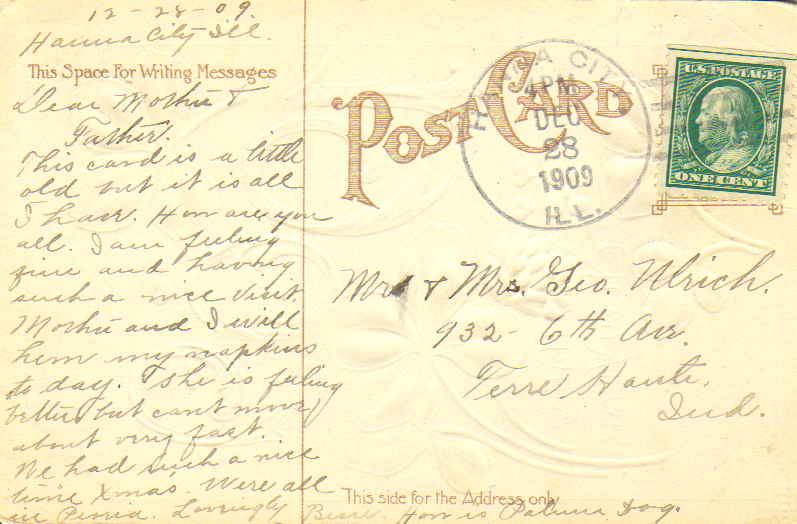 12-28-09.
Hanna City Ill.
This Space For Writing Messages
Dear Mother &
Father.
This card is a little
old but it is all
I have. How are you
all. I am feeling
fine and having
such a nice visit.
Mother and I will
hem my napkins
to day. She is feeling
better but cant move
about very fast.
We had such a nice
time Xmas. Were all
in Peoria. Lovingly Bessie. How is Paluma Dog.
POST CARD
HANNA CITY
4 PM
DEC
28
1909
ILL.
U.S. POSTAGE
ONE CENT
Mr & Mrs. Geo. Ulrich.
932- 6th Ave.
Terre Haute,
Ind.
This side for the Address only